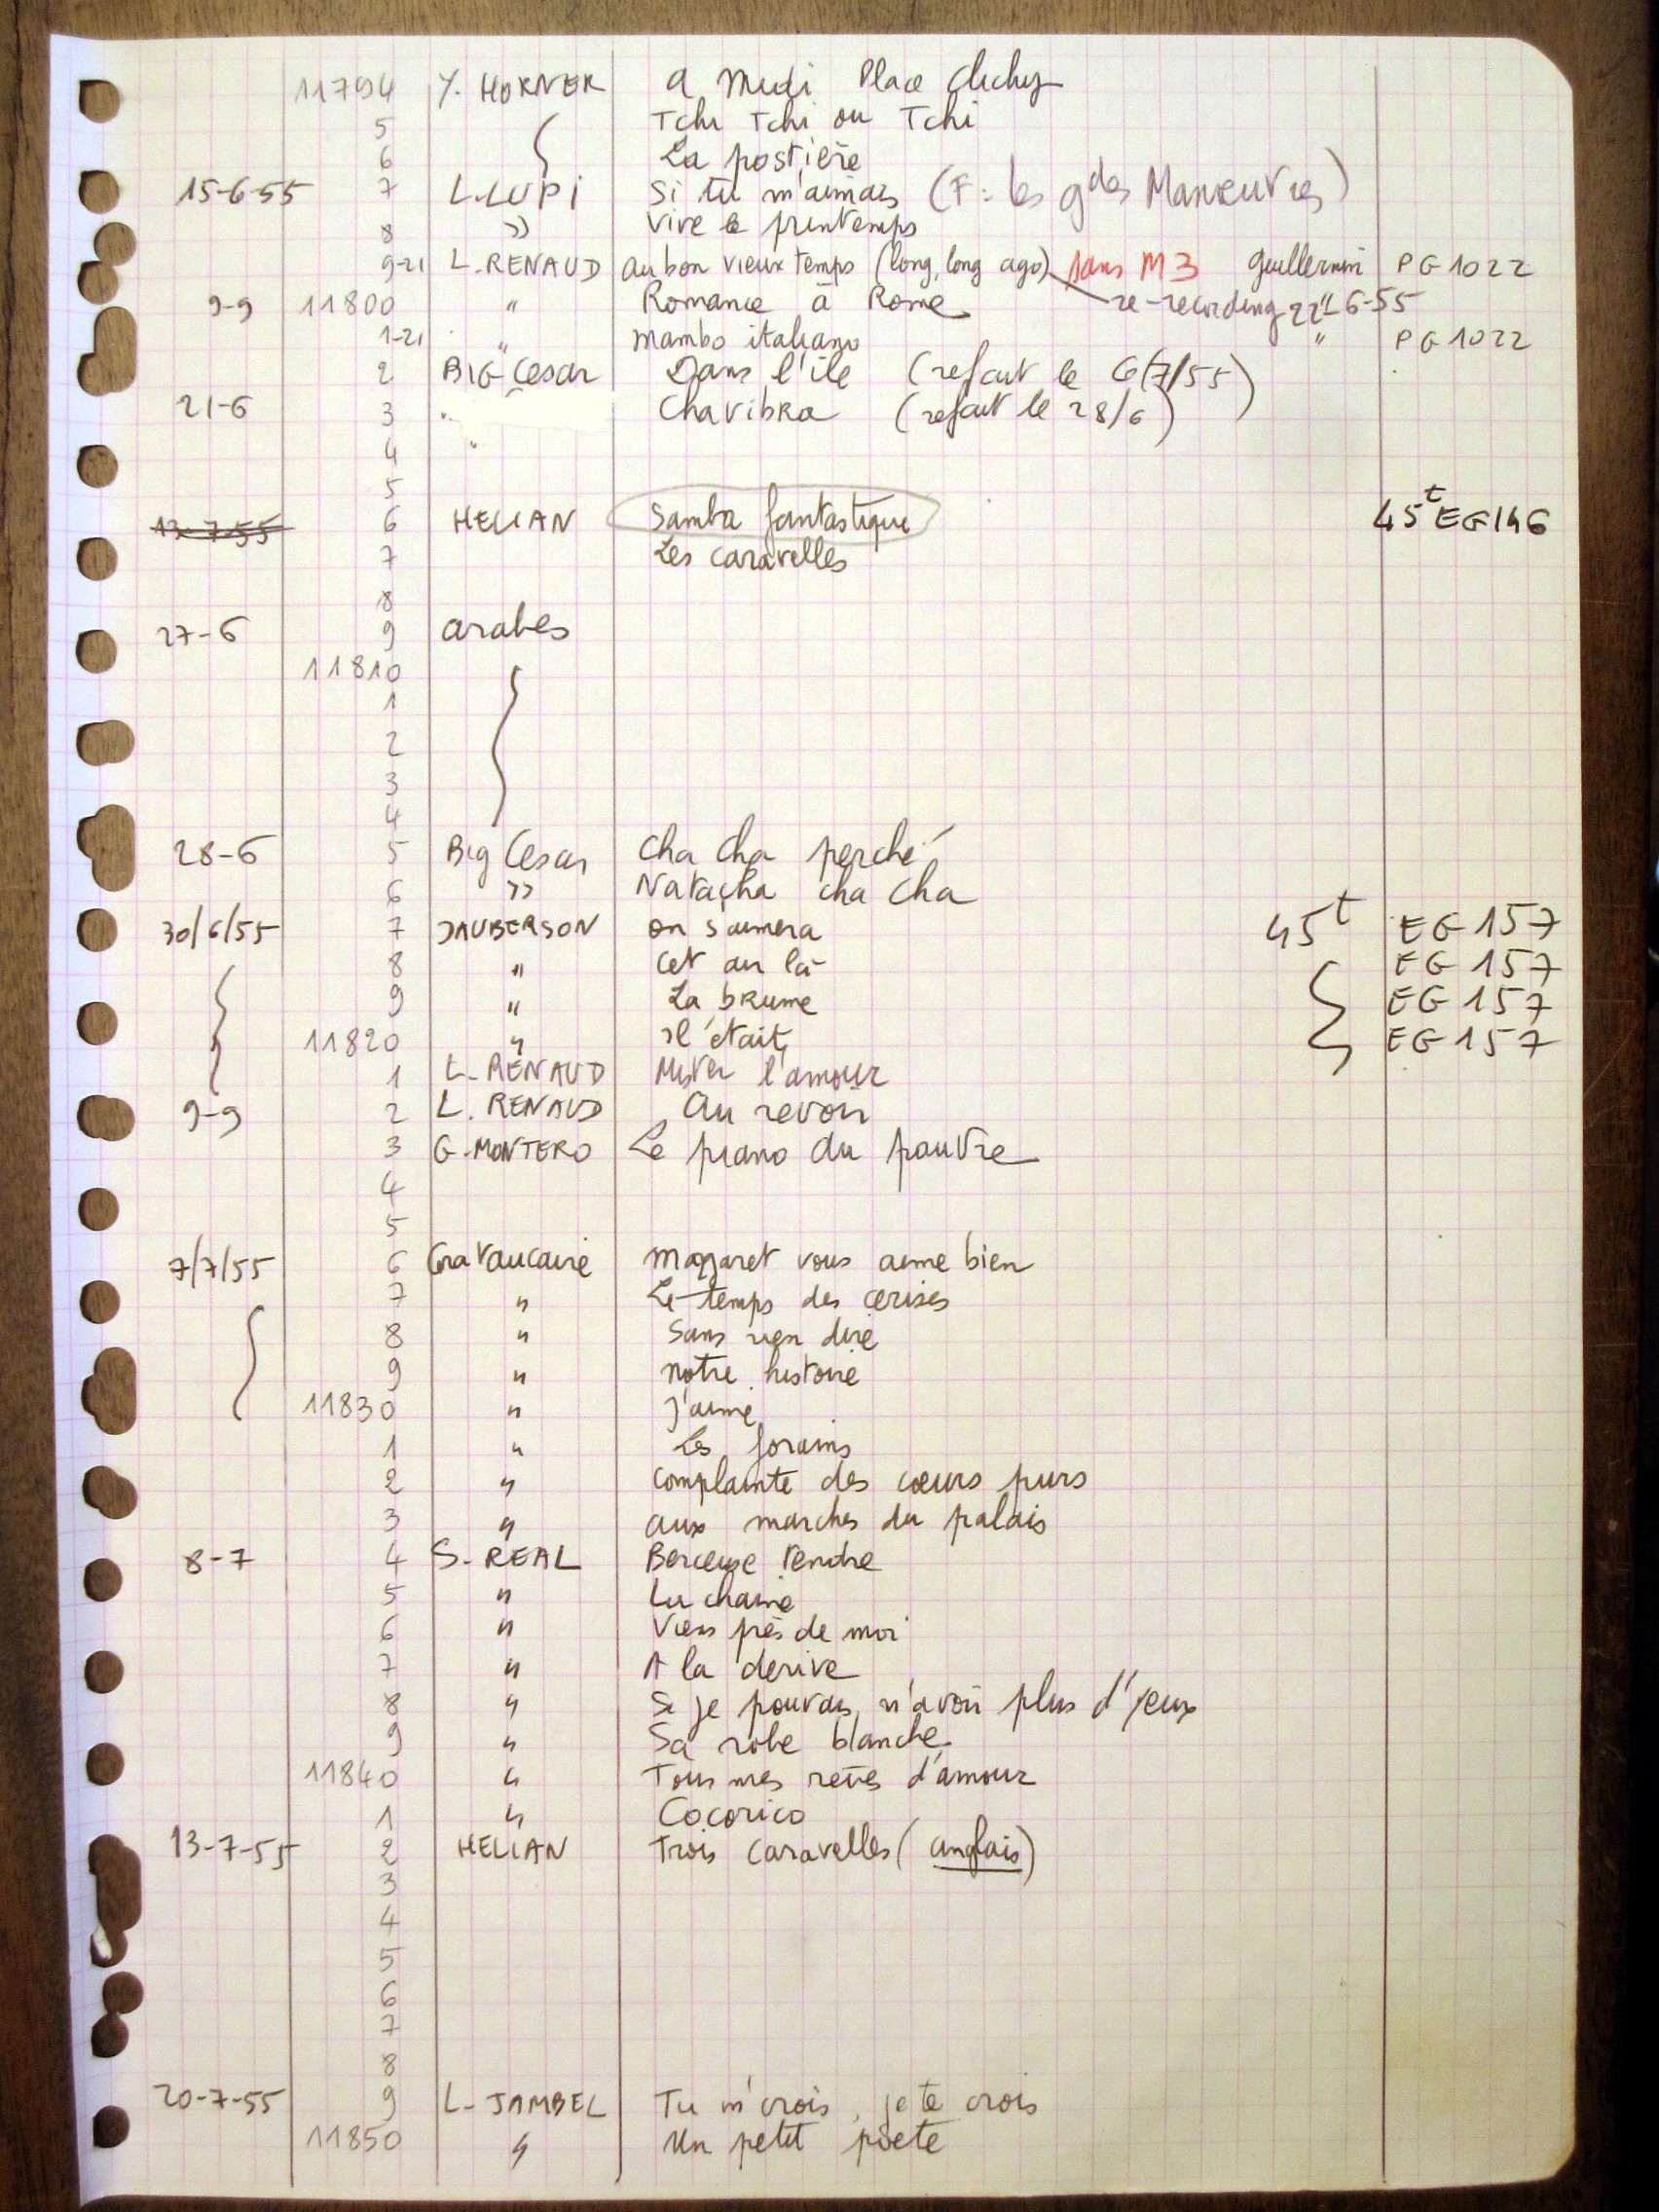 11794 Y. HORNER A Midi Place Clichy
5 Tchi Tchi ou Tchi
6 La postière
15-6-55 7 L. LUPI Si tu m'aimais (F: les gdes Manœuvres)
8 " Vive le printemps
9-21 L. RENAUD Au bon vieux temps (long, long ago) sans M3 Guillermin PG 1022
9-9 11800 " Romance à Rome re-recording 22-6-55 "
1-21 " Mambo italiano " PG 1022
2 BIG Cesar Dans l'île (refait le 6/7/55)
21-6 3 " Chavibra (refait le 28/6)
4 "
5
13-7-55 6 HELIAN Samba fantastique 45t EG 146
7 Les caravelles
8
27-6 9 arabes
11810
1
2
3
4
28-6 5 Big Cesar Cha cha perché
6 " Natacha cha cha
30/6/55 7 JAUBERSON on s'aimera 45t EG 157
8 " Cet air là EG 157
9 " La brume EG 157
11820 " Il était EG 157
1 L. RENAUD Mister l'amour
9-9 2 L. RENAUD Au revoir
3 G. MONTERO Le piano du pauvre
4
5
7/7/55 6 Cora Vaucaire Margaret vous aime bien
7 " Le temps des cerises
8 " Sans rien dire
9 " notre histoire
11830 " J'aime
1 " Les forains
2 " Complainte des cœurs purs
3 " aux marches du palais
8-7 4 S. REAL Berceuse tendre
5 " La chaine
6 " Viens près de moi
7 " A la derive
8 " Si je pouvais n'avoir plus d'yeux
9 " Sa robe blanche
11840 " Tous mes reves d'amour
1 " Cocorico
13-7-55 2 HELIAN Trois caravelles (anglais)
3
4
5
6
7
8
20-7-55 9 L. JAMBEL Tu m'crois, je te crois
11850 " Un petit poete